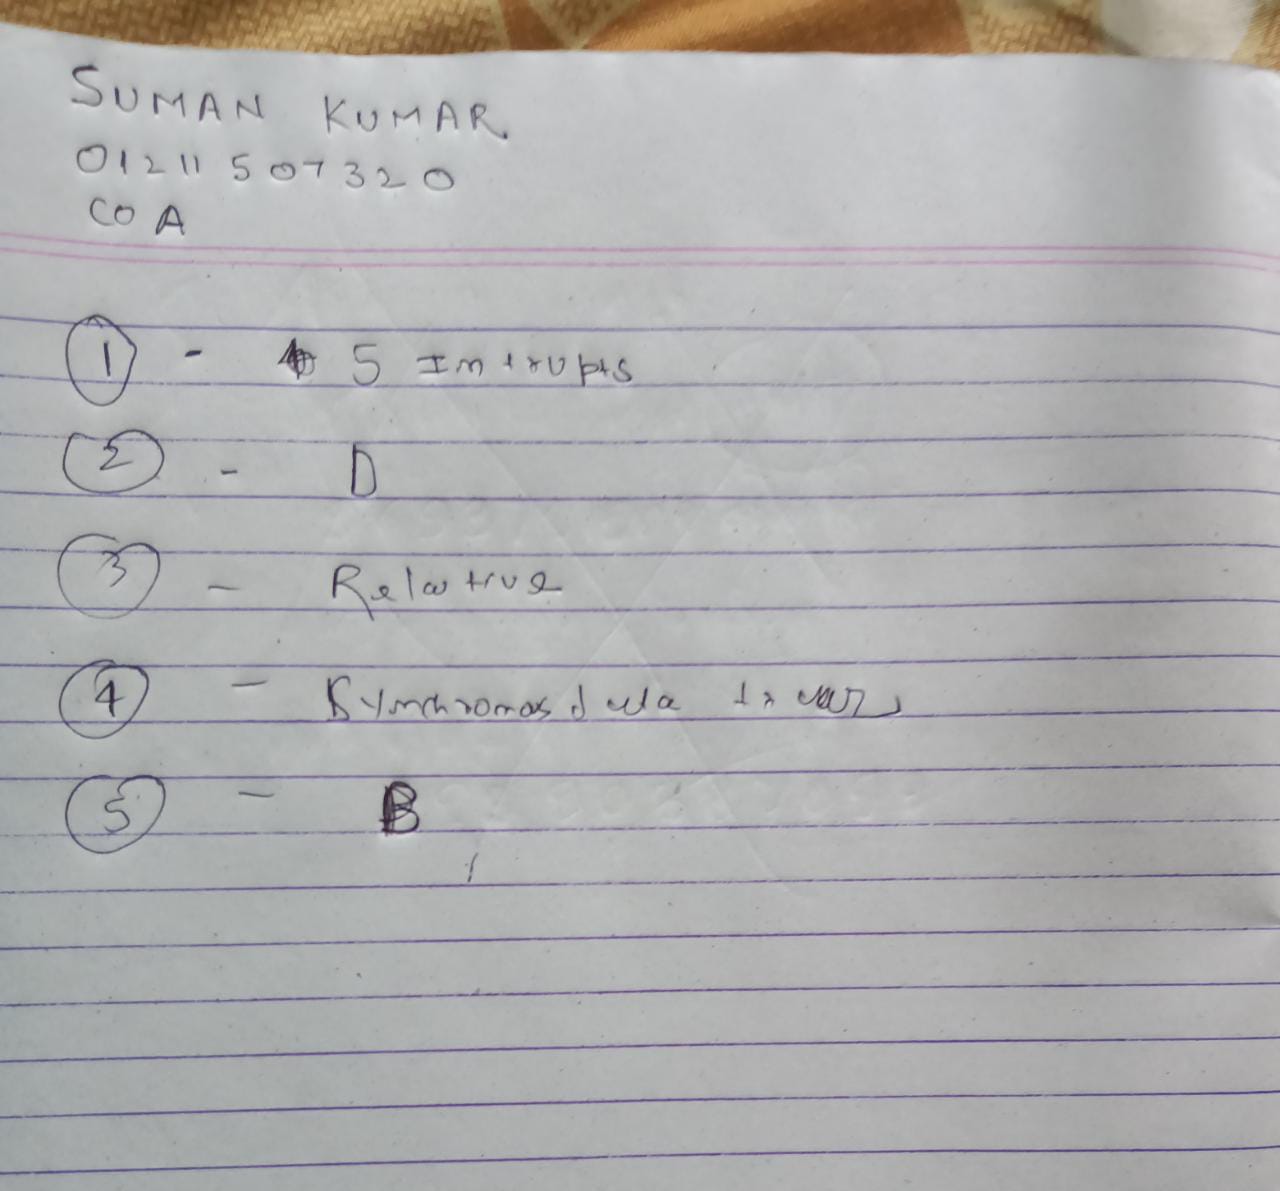 SUMAN KUMAR.
01211507320
COA
1 - 5 Intrupts
2 - D
3 - Relative
4 - Synchronos data
5 - B